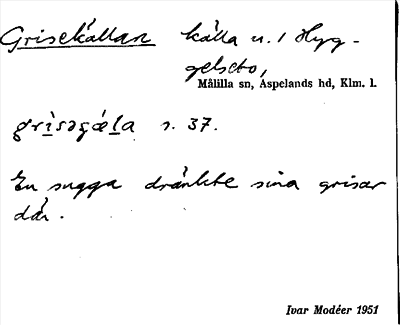 Grisekällan källa u. 1 Hyg-
gelsebo,
Målilla sn, Aspelands hd, Klm. l.
s. 37.
En sugga dränkte sina grisar
där.
Ivar Modéer 1951